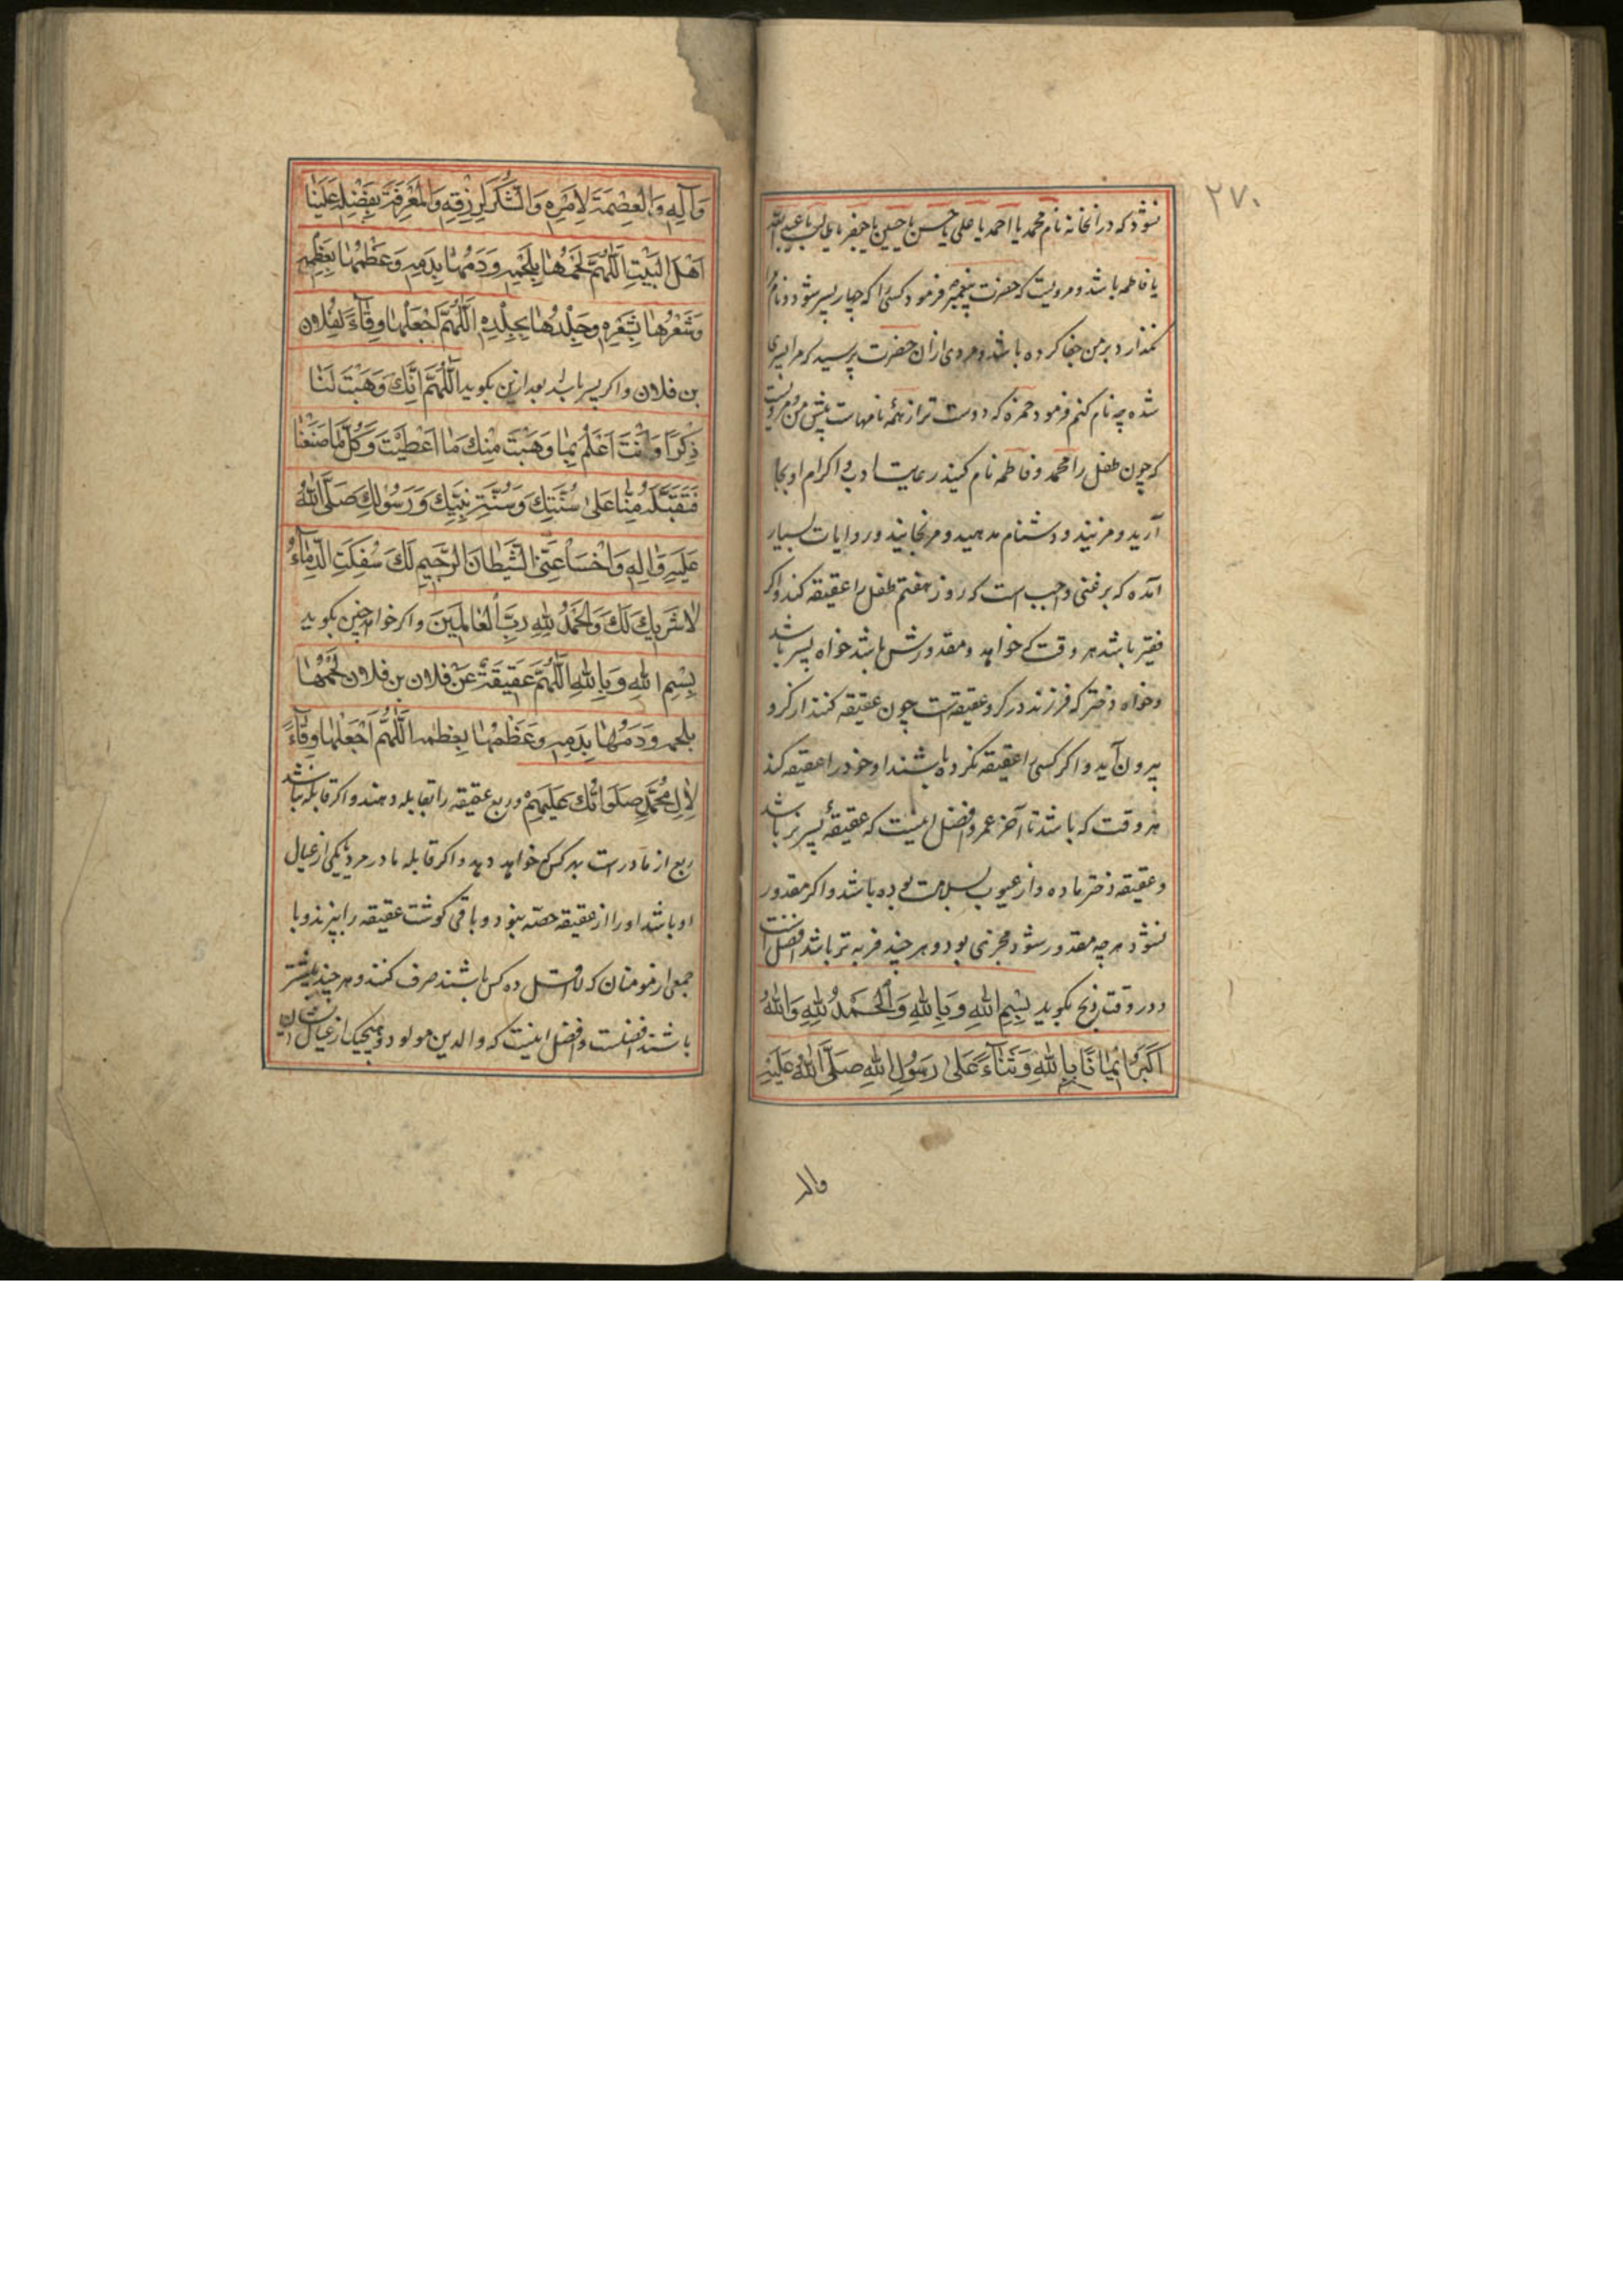 ۲۷۰
نشود که در آنخانه نام محمد یا احمد یا علی یا حسن یا حسین یا جعفر یا طالب یا عبدالله
یا فاطمه باشد و مرویست که حضرت پیغمبر ص فرمود کسی را که چهار پسر شود و نام
نکذارد بر من جفا کرده باشد و مردی از آن حضرت پرسید که مرا پسری
شده چه نام کنم فرمود حمزه که دوست تر از همه نامهاست پیش من و مرویست
که چون طفل را محمد و فاطمه نام کنید رعایت ادب و اکرام او بجا
آرید و مزنید و دشنام مدهید و مرنجانید و روایات بسیار
آمده که بر غنی واجب است که روز هفتم طفل را عقیقه کند و اگر
فقیر باشد هر وقت که خواهد و مقدورش باشد خواه پسر باشد
و خواه دختر که فرزند در کرو عقیقه است چون عقیقه کنند از کرو
بیرون آید و اکر کسی را عقیقه نکرده باشند او خود را عقیقه کند
هر وقت که باشد تا آخر عمر و افضل اینست که عقیقهٔ پسر نر باشد
و عقیقه دختر ماده و از عیوب بسلامت بوده باشد و اکر مقدور
نشود هر چه مقدور شود مجزی بود و هر چند فربه تر باشد افضل است
و در وقت ذبح بکوید بِسْمِ اللهِ وَبِاللهِ وَالْحَمْدُ لِلهِ وَاللهُ
اَكْبَرُ اِیمَانًا بِاللهِ وَثَنَآءً عَلیٰ رَسُولِ اللهِ صَلَّی اللهُ عَلَیْهِ
وَآلِهِ وَالْعِصْمَةَ لِاَمْرِهِ وَالشُّكْرَ لِرِزْقِهِ وَالْمَعْرِفَةَ بِفَضْلِهِ عَلَیْنَا
اَهْلَ الْبَیْتِ اَللّٰهُمَّ لَحْمُهَا بِلَحْمِهِ وَدَمُهَا بِدَمِهِ وَعَظْمُهَا بِعَظْمِهِ
وَشَعْرُهَا بِشَعْرِهِ وَجِلْدُهَا بِجِلْدِهِ اَللّٰهُمَّ اجْعَلْهَا وِقَآءً لِفُلَانِ
بن فلان و اکر پسر باشد بعد ازین بکوید اَللّٰهُمَّ اِنَّكَ وَهَبْتَ لَنَا
ذَكَرًا وَاَنْتَ اَعْلَمُ بِمَا وَهَبْتَ مِنْكَ مَا اَعْطَیْتَ وَكُلُّ مَا صَنَعْنَا
فَتَقَبَّلْهُ مِنَّا عَلیٰ سُنَّتِكَ وَسُنَّةِ نَبِیِّكَ وَرَسُولِكَ صَلَّی اللهُ
عَلَیْهِ وَآلِهِ وَاخْسَأْ عَنِّی الشَّیْطَانَ الرَّجِیمَ لَكَ سُفِكَتِ الدِّمَآءُ
لَا شَرِیكَ لَكَ وَالْحَمْدُ لِلهِ رَبِّ الْعَالَمِینَ و اکر خواهد چنین بکوید
بِسْمِ اللهِ وَبِاللهِ اَللّٰهُمَّ عَقِیقَةٌ عَنْ فلان بن فلان لَحْمُهَا
بلحمه وَدَمُهَا بِدَمِهِ وَعَظْمُهَا بِعَظْمِهِ اَللّٰهُمَّ اجْعَلْهَا وِقَآءً
لِاٰلِ مُحَمَّدٍ صَلَوَاتُكَ عَلَیْهِمْ و ربع عقیقه را بقابله دهند و اکر قابله نباشد
ربع از مادر است بهر کس که خواهد دهد و اکر قابله مادر مرد یا یکی از عیال
او باشد او را از عقیقه حصّه نبود و باقی کوشت عقیقه را بپزند و با
جمعی از مومنان که لااقل ده کس باشند صرف کنند و هر چند بیشتر
باشند افضلست و افضل اینست که والدین مولود و هیچیک از عیال ایشان
والد